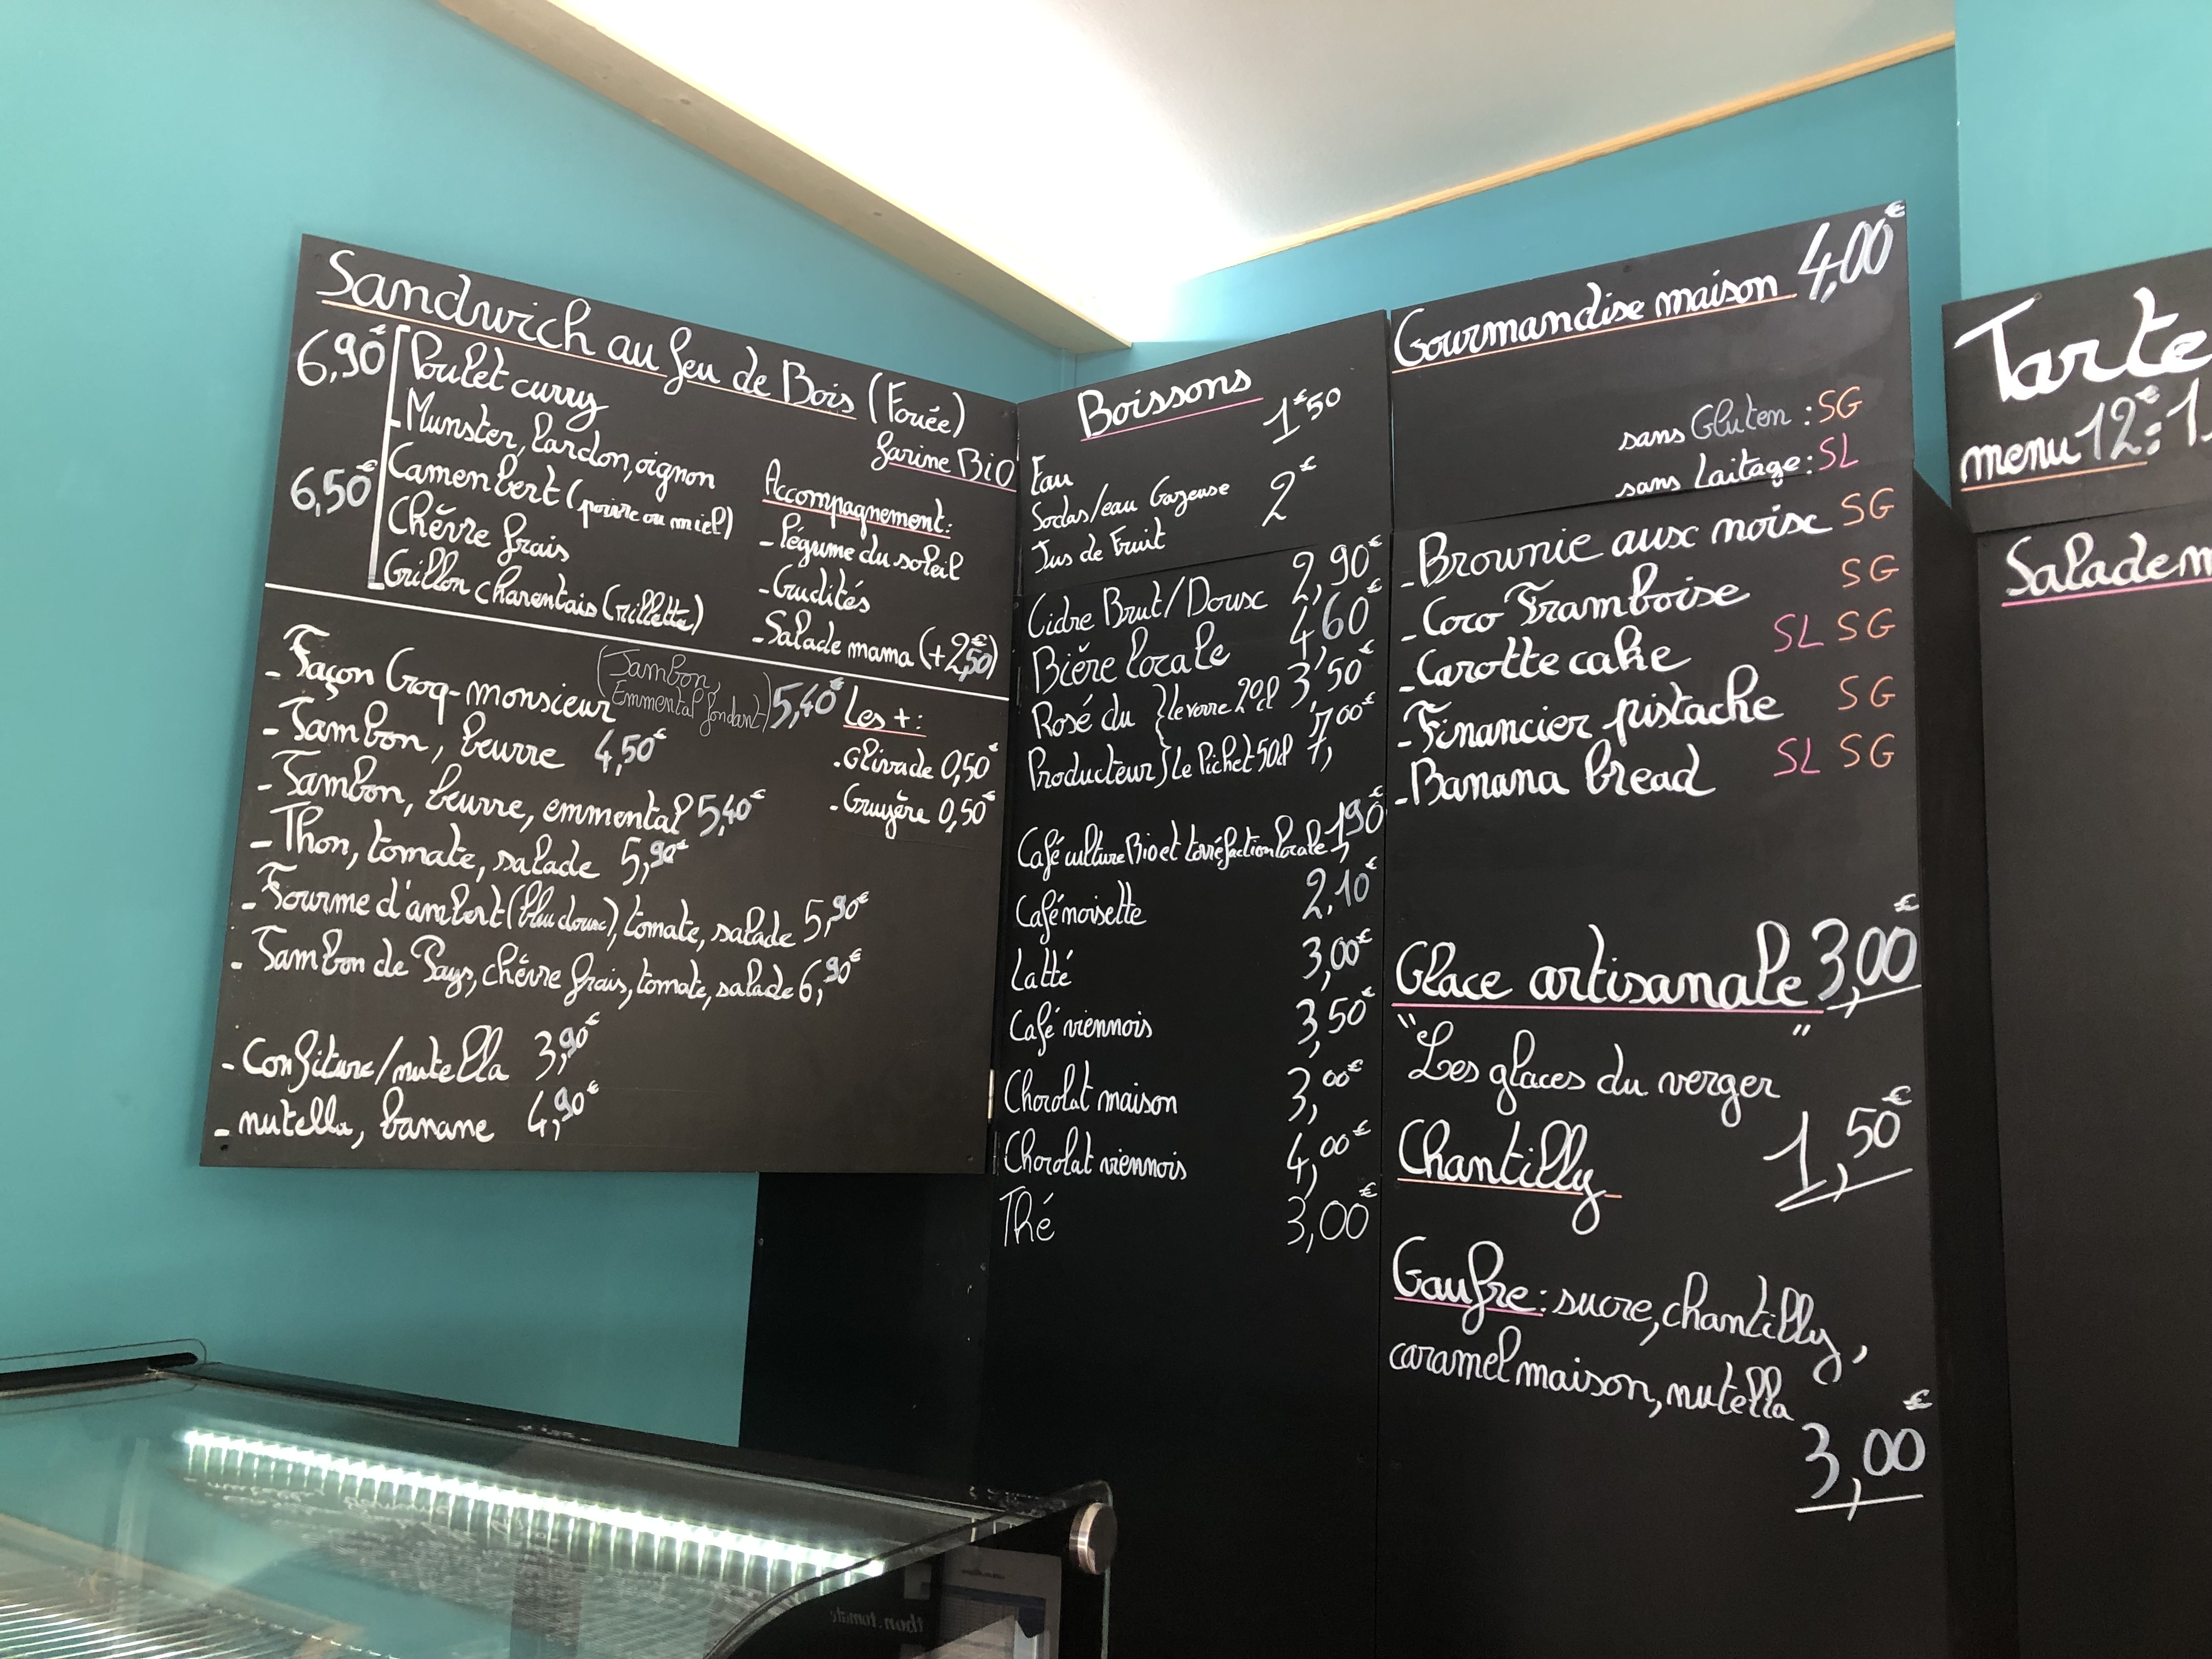 Sandwich au feu de Bois (Fouée)
farine BiO
6,90€
Poulet curry
Munster, lardon, oignon
6,50€
Camembert (poivre ou miel)
Chèvre frais
Grillon charentais (rillette)
Accompagnement:
- légume du soleil
- Crudités
- Salade mama (+2,50€)
- Façon Croq-monsieur (Jambon, Emmental fondant) 5,40€
- Jambon, beurre 4,50€
- Jambon, beurre, emmental 5,40€
- Thon, tomate, salade 5,90€
- Fourme d'ambert (bleu doux), tomate, salade 5,90€
- Jambon de Pays, chèvre frais, tomate, salade 6,90€
- Confiture/nutella 3,90€
- nutella, banane 4,90€
Les +:
- Olivade 0,50€
- Gruyère 0,50€
Boissons
Eau 1€50
Sodas/eau Gazeuse 2€
Jus de Fruit
Cidre Brut/Doux 2,90€
Bière locale 4,60€
Rosé du } le verre 20cl 3,50€
Producteur } le Pichet 50cl 7,00€
Café culture Bio et torréfaction locale 1,90€
Café noisette 2,10€
Latté 3,00€
Café viennois 3,50€
Chocolat maison 3,00€
Chocolat viennois 4,00€
Thé 3,00€
Gourmandise maison 4,00€
sans Gluten : SG
sans Laitage : SL
- Brownie aux noix SG
- Coco Framboise SG
- Carotte cake SL SG
- Financier pistache SG
- Banana bread SL SG
Glace artisanale 3,00€
"Les glaces du verger"
Chantilly 1,50€
Gaufre: sucre, chantilly,
caramel maison, nutella
3,00€
Tarte
menu 12€
Salade m
thon.tomate